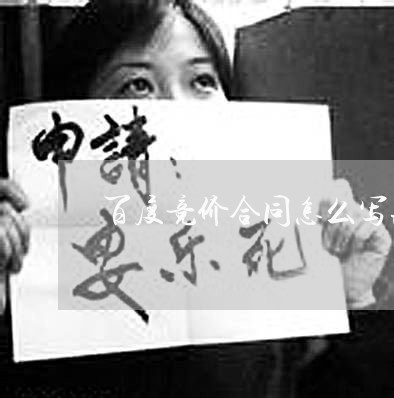 申請：
百度竞价合同怎么写
安乐死